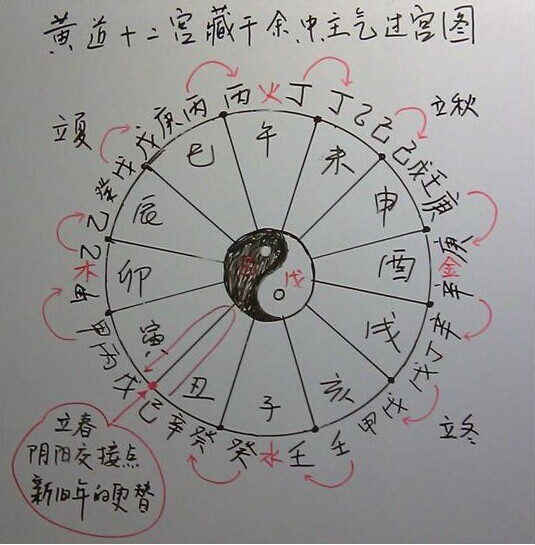 黄道十二宫藏干余中主气过宫图
立夏
立秋
立冬
丙 火 丁
丁 乙 己
己 戊 壬 庚
庚 金 辛
辛 丁 戊
戊 甲 壬
壬 水 癸
癸 辛 己
戊 丙 甲
甲 木 乙
乙 癸 戊
戊 庚 丙
午
未
申
酉
戌
亥
子
丑
寅
卯
辰
巳
己
戊
立春
阴阳交接点
新旧年的更替